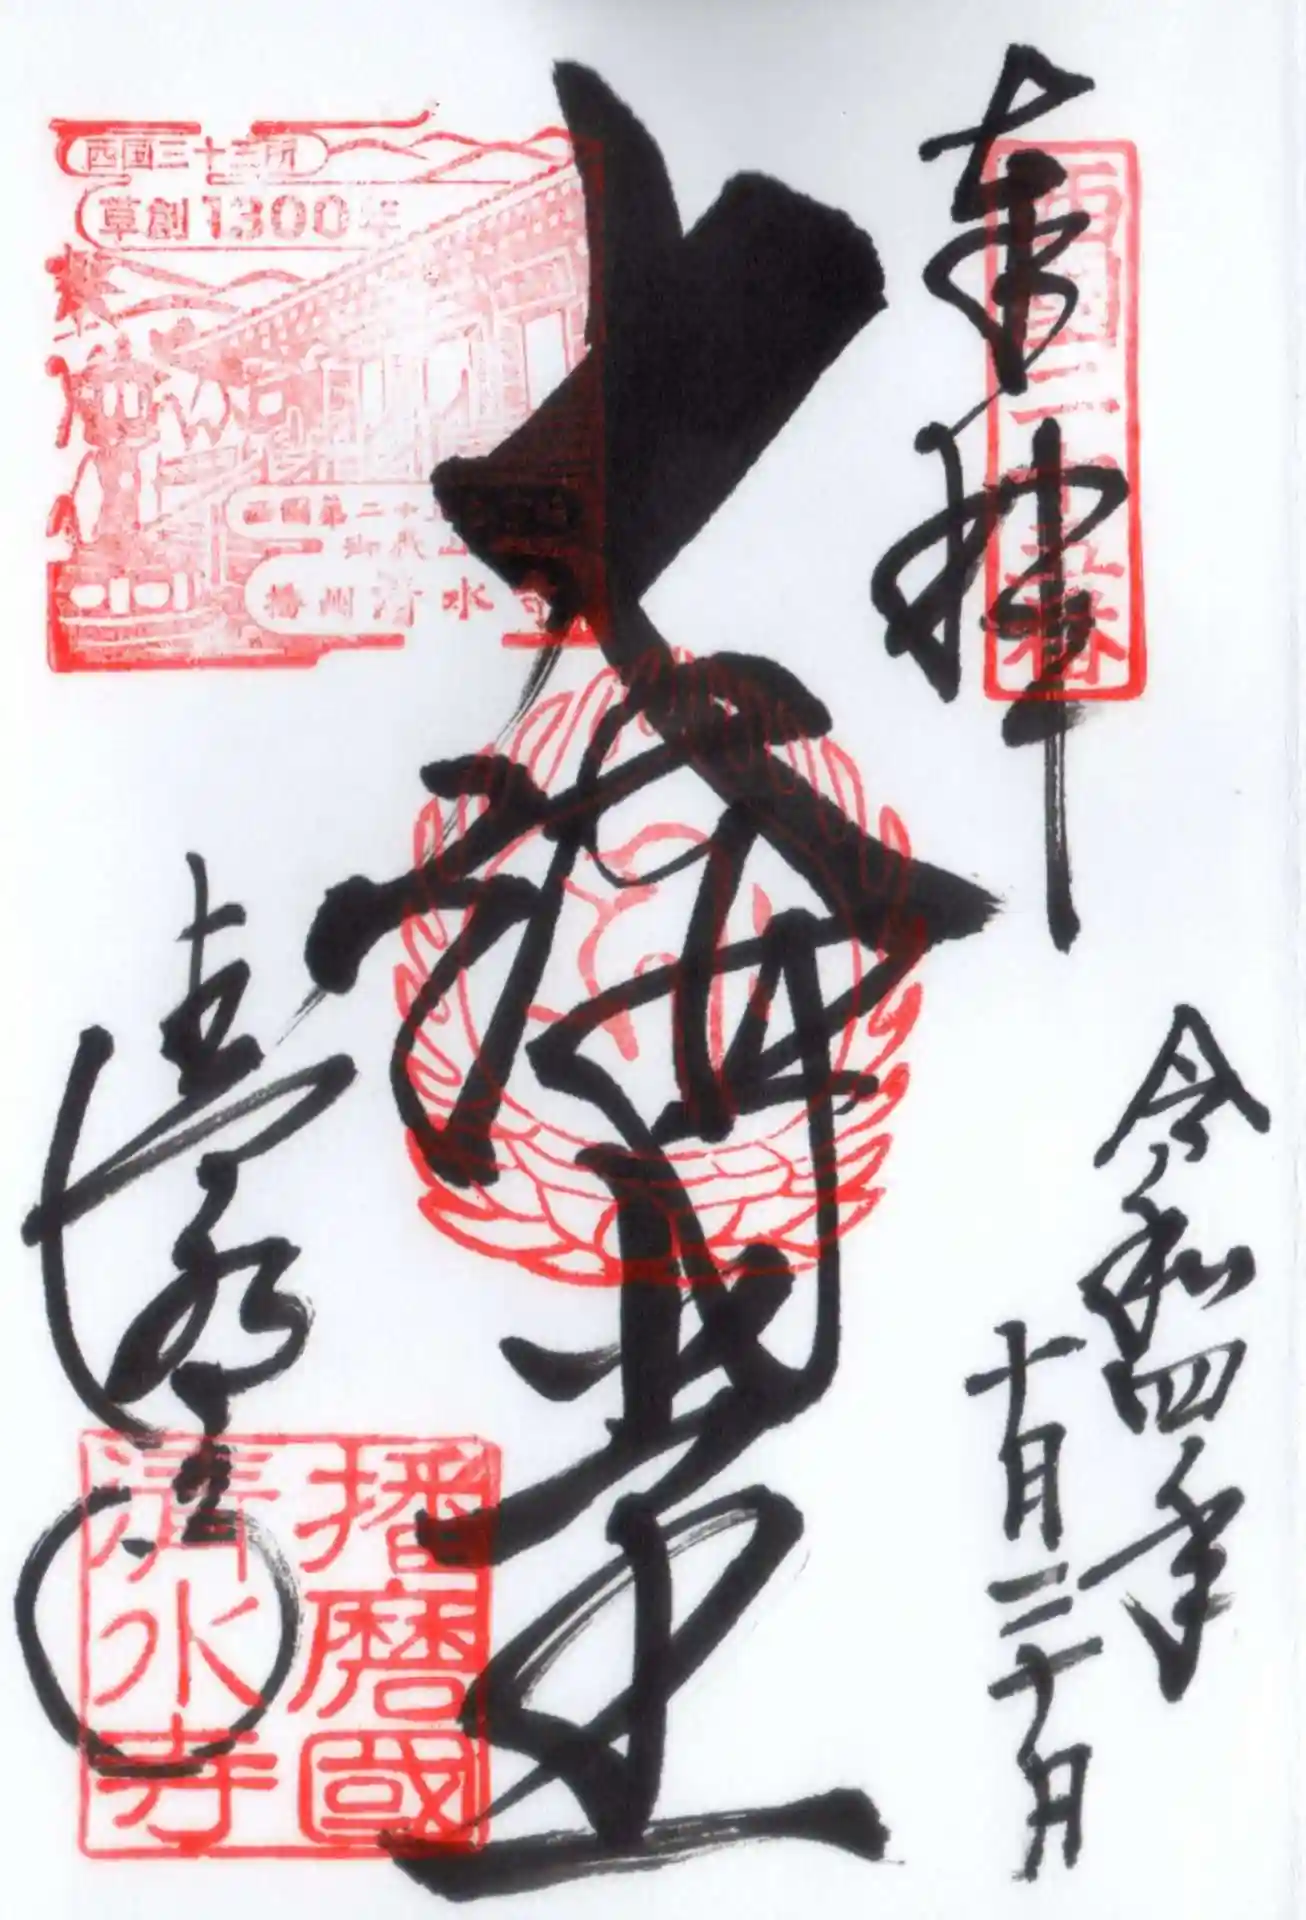 奉拝
西国二十五番
令和四年
十月二十日
大講堂
西国三十三所
草創1300年
西国第二十五番
御嶽山
播州清水寺
清水寺
播磨國
清水寺